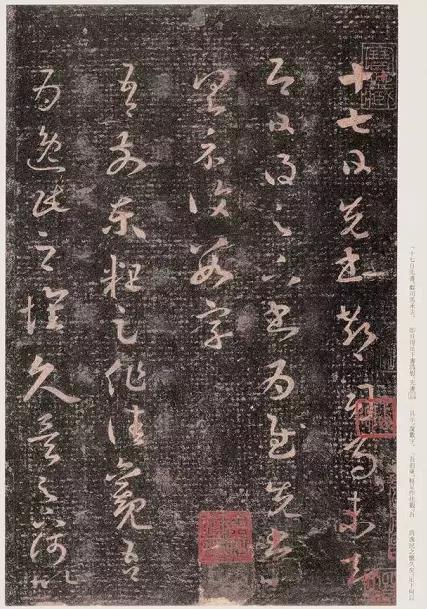 十七日先書郗司馬未去
即日得足下書為慰先書以
具示復數字
吾前東粗足作佳觀吾
為逸民之懷久矣足下何以
「十七日先書,郗司馬未去。 即日得足下書爲慰,先書 具示,復數字。 「吾前東,粗足作佳觀。吾 爲逸民之懷久矣,足下何以